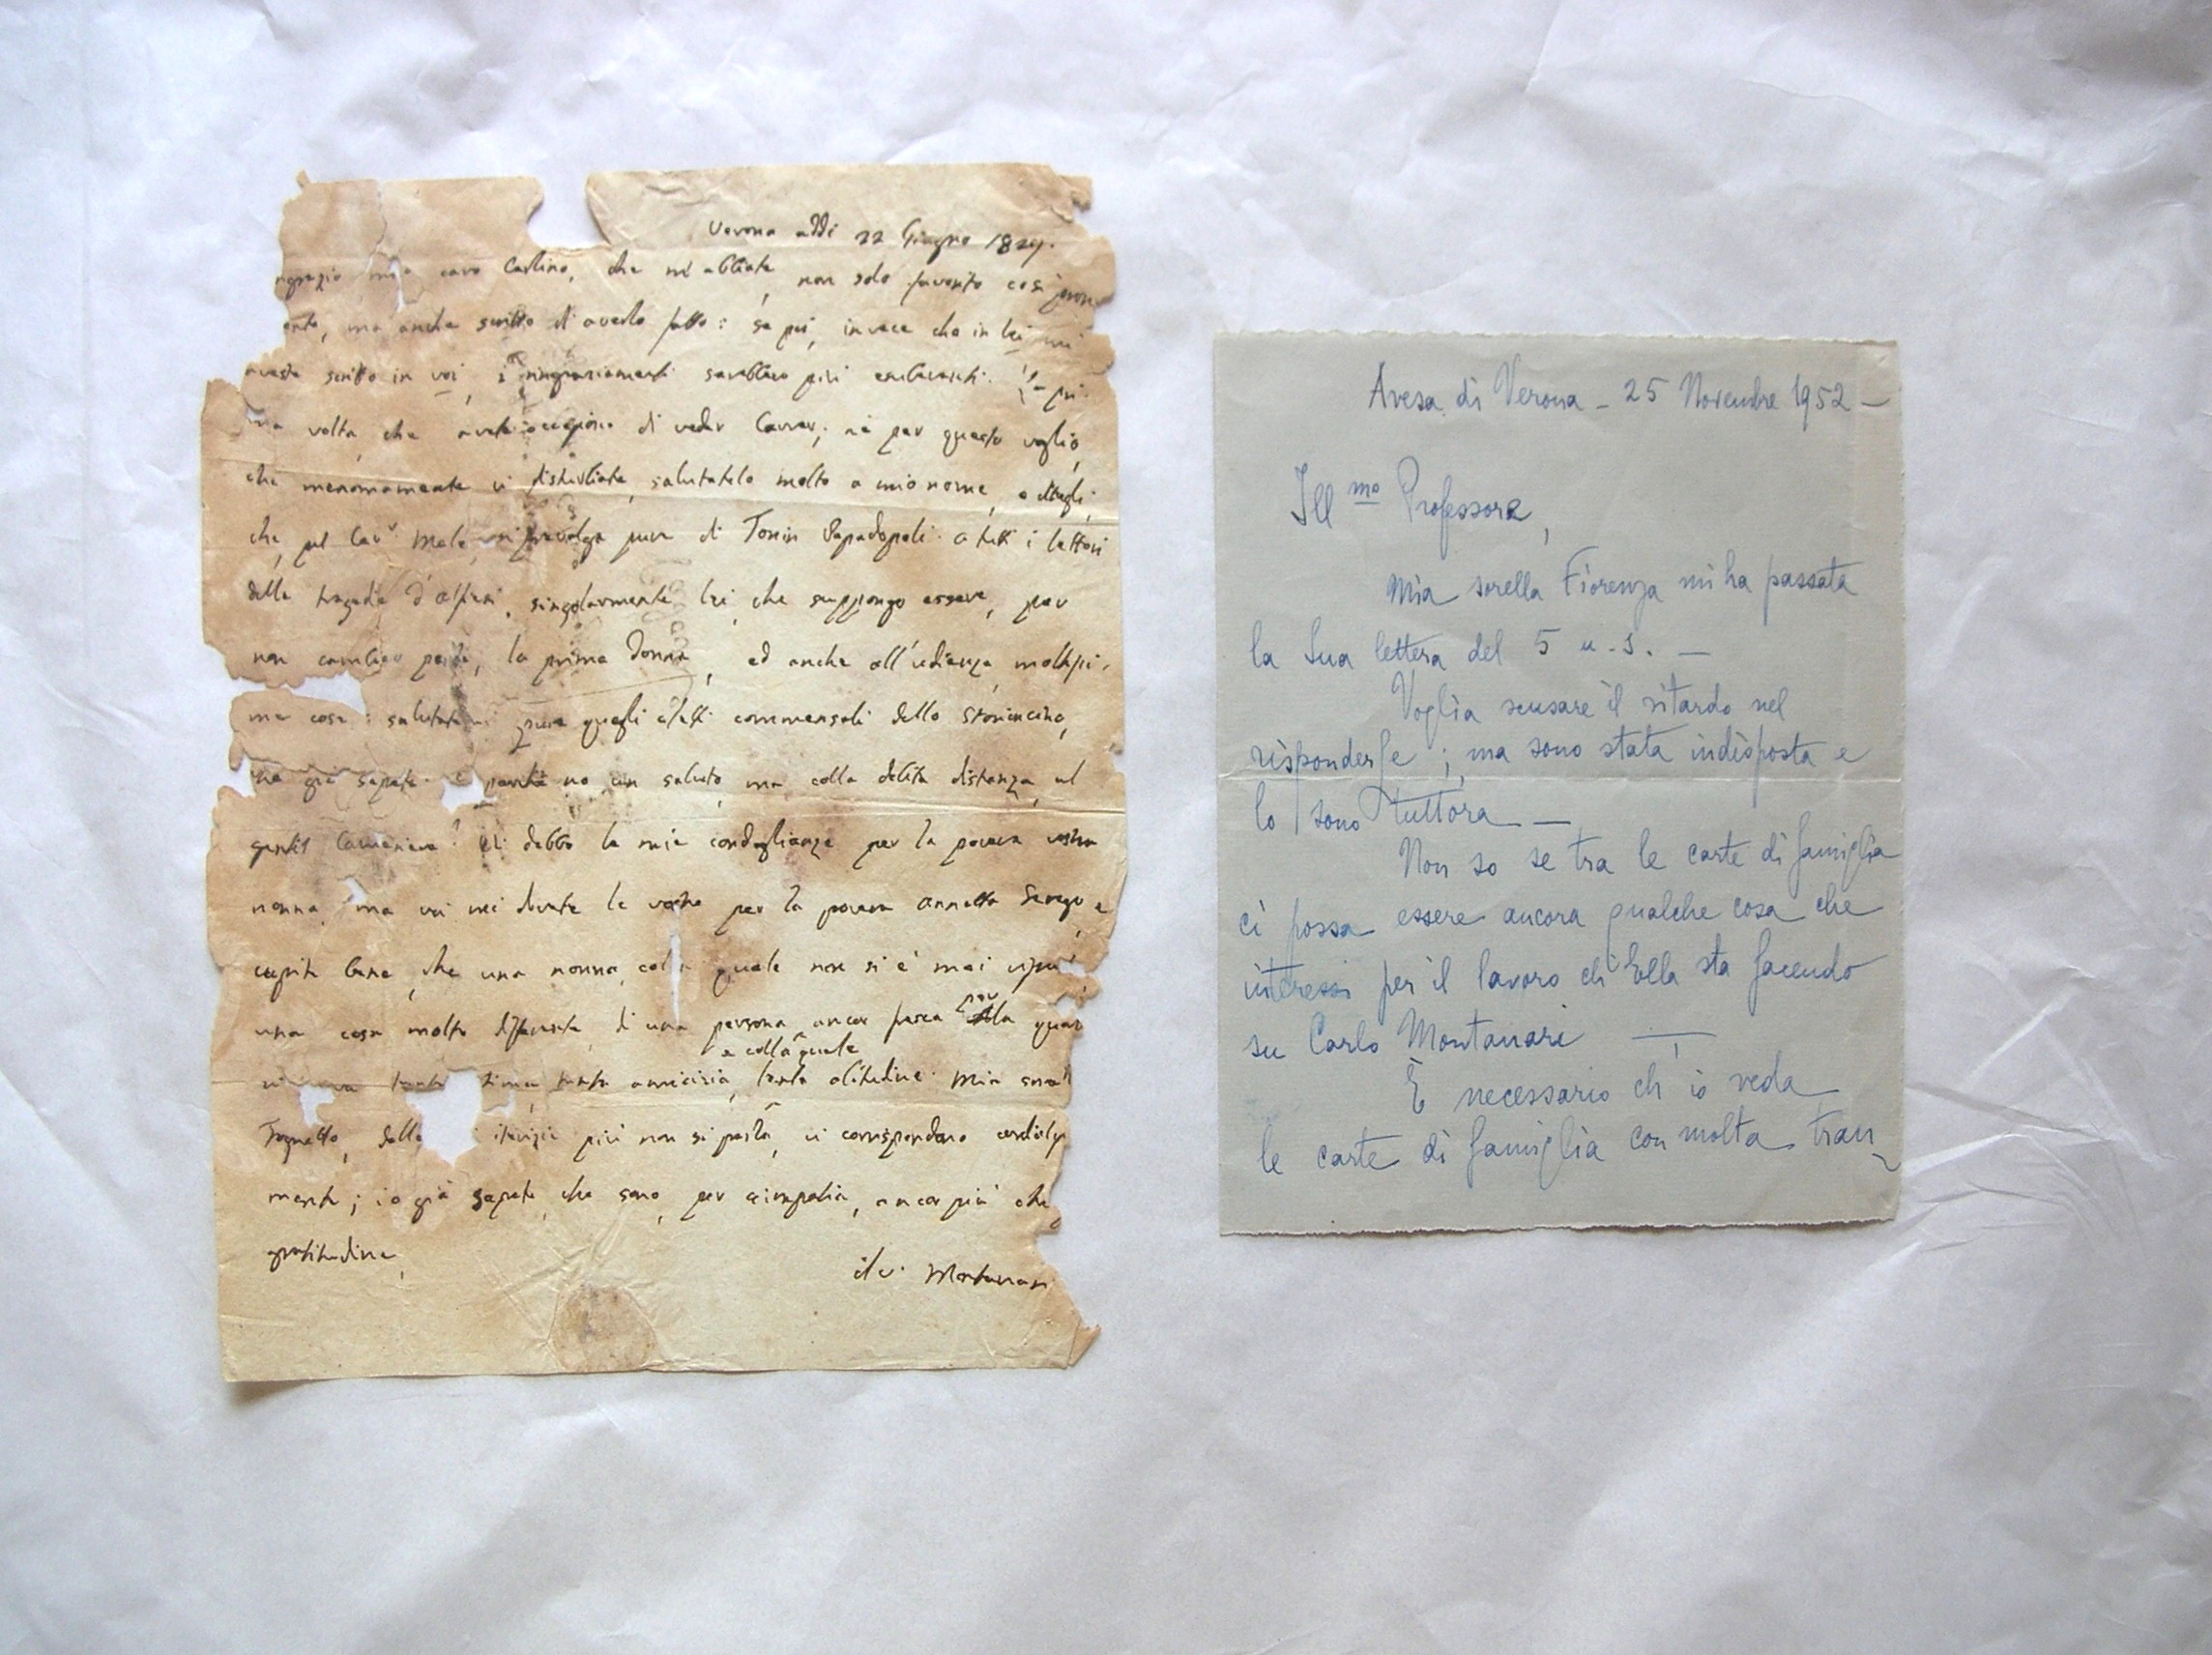 Verona addi 22 Giugno 1829.
mio caro Carlino, che m'abbiate, non solo favorito così
ma anche scritto d'averlo fatto: se poi, invece che in lei mi
aveste scritto in voi, i ringraziamenti sarebbero più
volta, che avete occasione di veder Carrer, nè per questo voglio,
che menomamente vi disturbiate, salutatelo molto a mio nome, e ditegli,
che, pel Cav.r Mela, si prevalga pure di Tonin Papadopoli. a tutti i lettori
delle tragedie d'alfieri, singolarmente lei, che suppongo essere, per
non cambiar parte, la prima Donna, ed anche all'udienza, moltissi-
me cose: salutatemi pure quegli eletti commensali dello
già sapete. E perchè no un saluto, ma colla debita distanza, al
gentil Cameriere? Vi debbo le mie condoglianze per la povera vostra
nonna, ma voi mi dovete le vostre per la povera annetta Serego, e
capite bene, che una nonna, colla quale non si è mai
una cosa molto differente, di una persona ancor fresca per la
e colla quale
tanta amicizia, tanta abitudine. Mia
più non si parla, vi corrispondono cordial
mente; io già sapete, che sono, per simpatia, ancor più che
gratitudine,
il v. Montanari
Avesa di Verona - 25 Novembre 1952 -
Ill mo Professore,
Mia sorella Fiorenza mi ha passata
la Sua lettera del 5 u.s. -
Voglia scusare il ritardo nel
risponderLe; ma sono stata indisposta e
lo sono tuttora -
Non so se tra le carte di famiglia
ci possa essere ancora qualche cosa che
interessi per il lavoro ch'Ella sta facendo
su Carlo Montanari -
È necessario ch'io veda
le carte di famiglia con molta tran